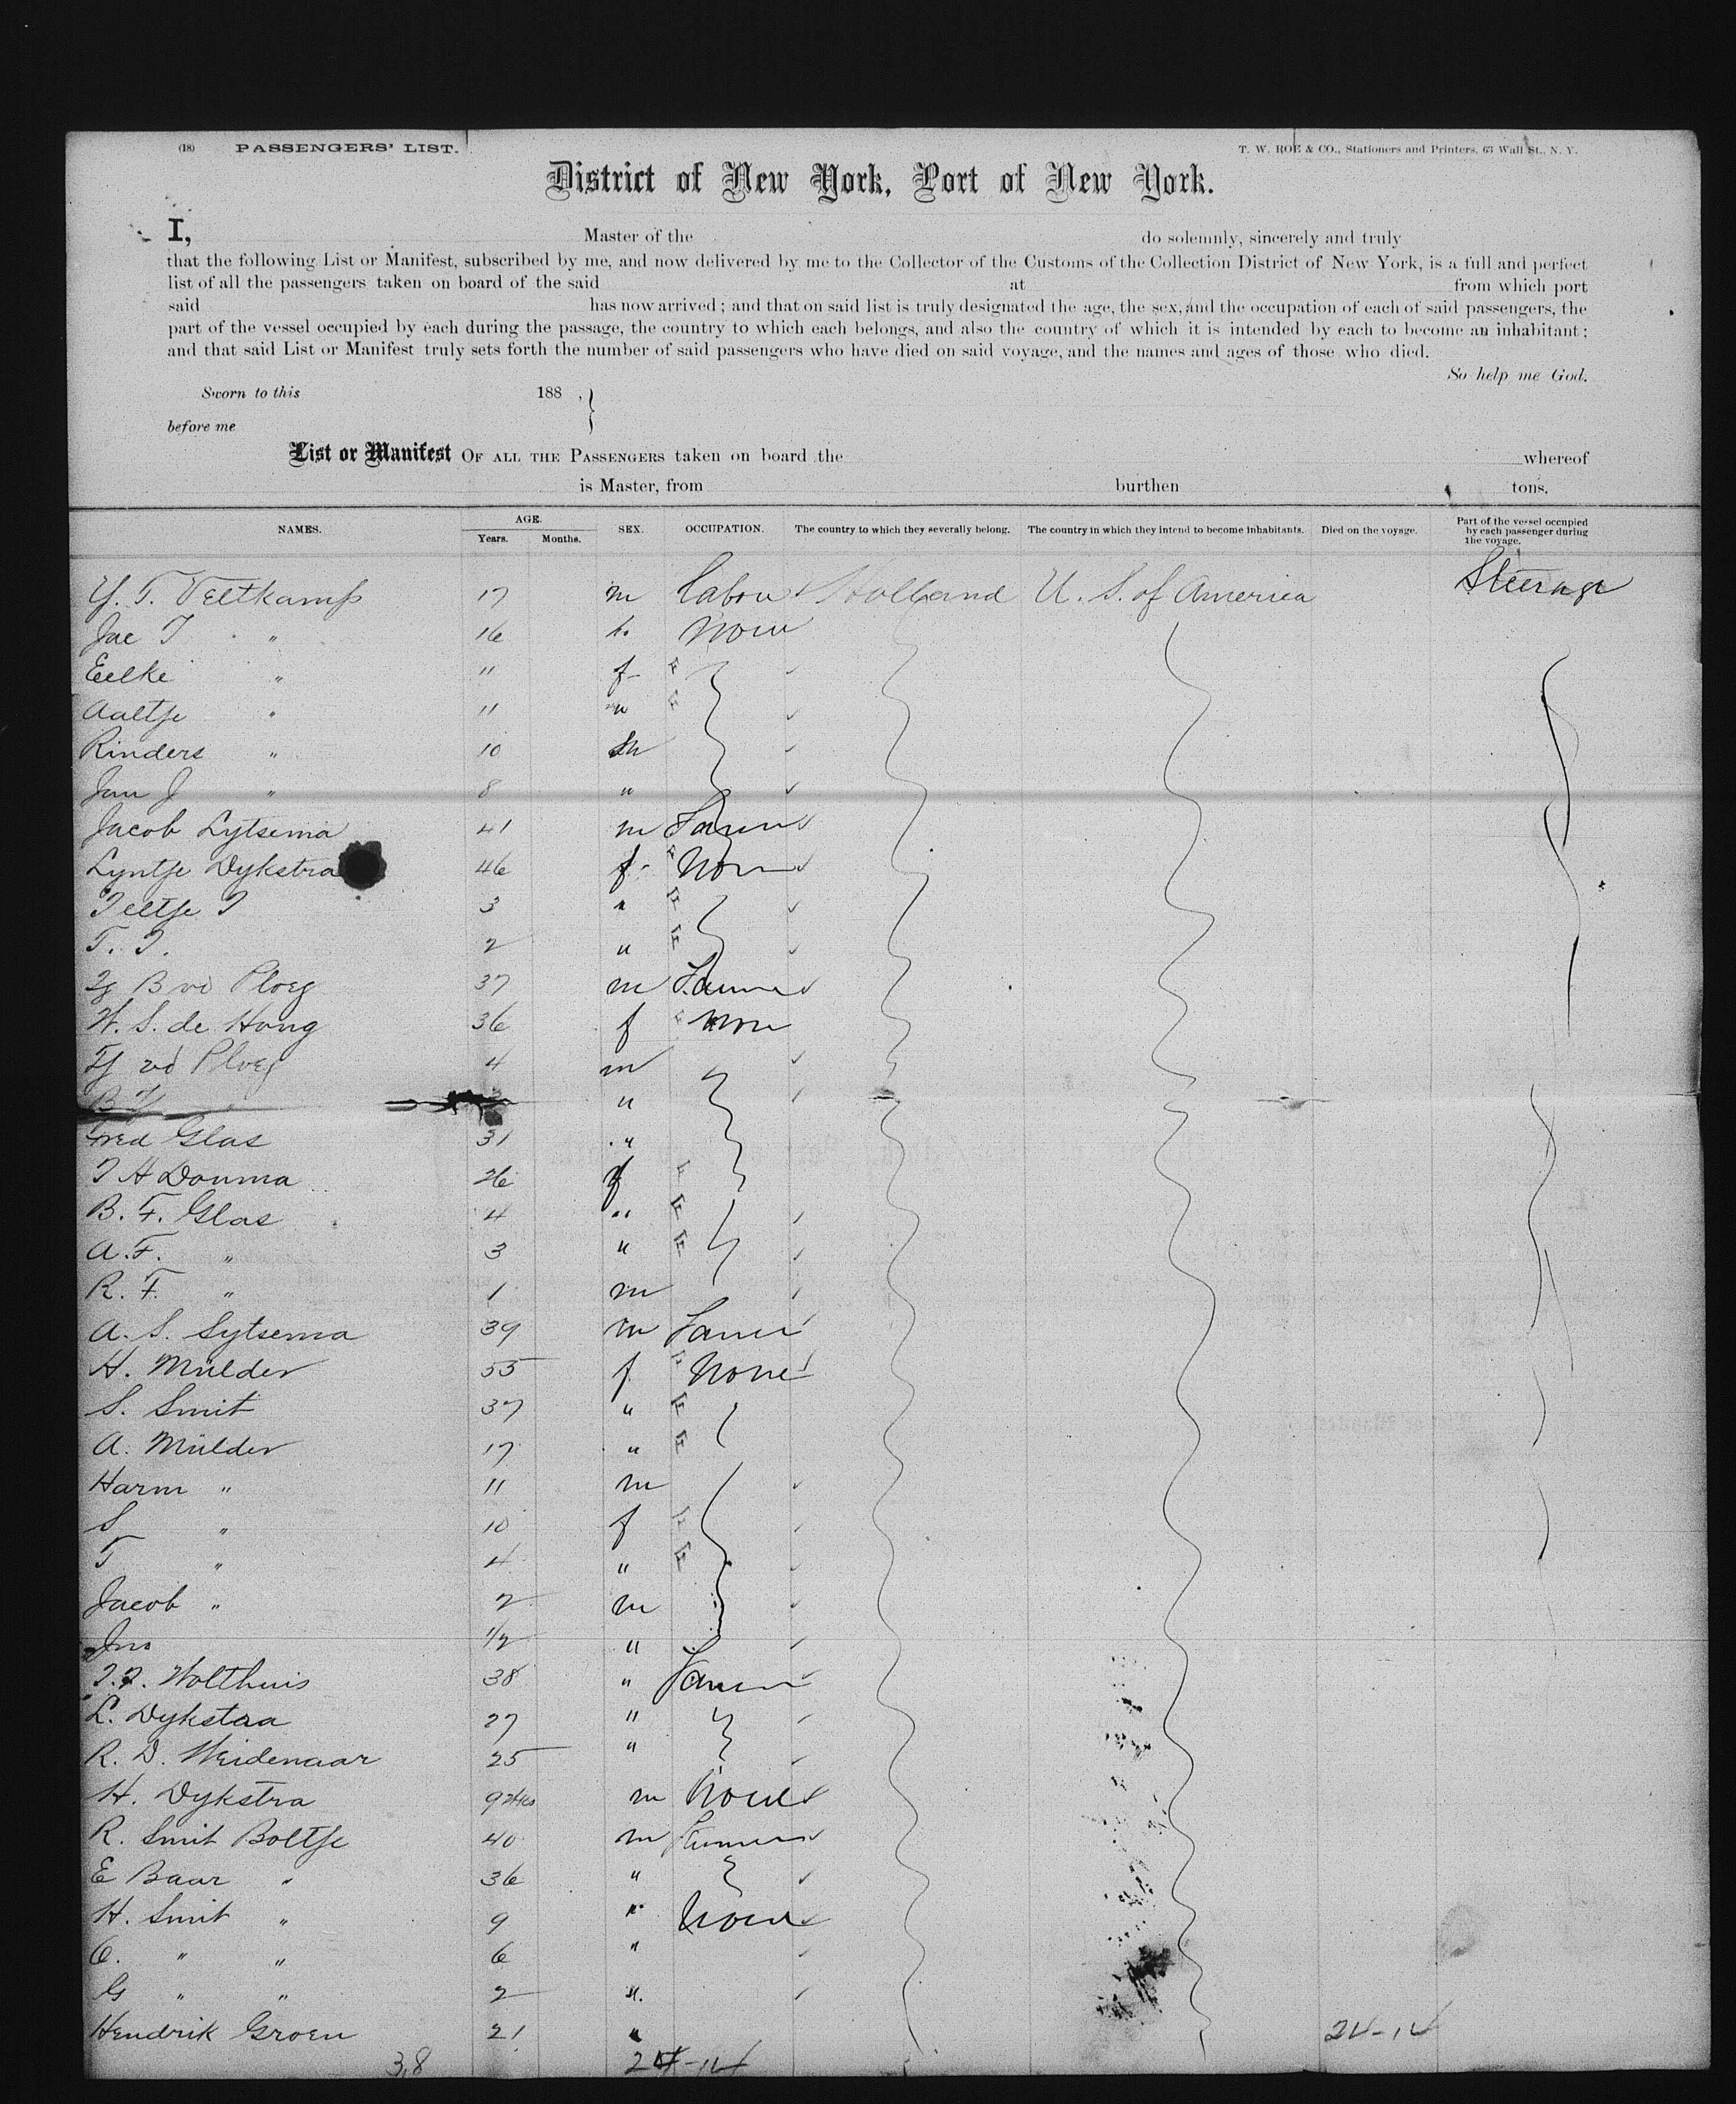 (18) PASSENGERS' LIST. T. W. ROE & CO., Stationers and Printers, 63 Wall St., N. Y.
District of New York, Port of New York.
I, Master of the do solemnly, sincerely and truly
that the following List or Manifest, subscribed by me, and now delivered by me to the Collector of the Customs of the Collection District of New York, is a full and perfect
list of all the passengers taken on board of the said at from which port
said has now arrived; and that on said list is truly designated the age, the sex, and the occupation of each of said passengers, the
part of the vessel occupied by each during the passage, the country to which each belongs, and also the country of which it is intended by each to become an inhabitant;
and that said List or Manifest truly sets forth the number of said passengers who have died on said voyage, and the names and ages of those who died.
So help me God.
Sworn to this 188 ,
before me
List or Manifest OF ALL THE PASSENGERS taken on board the whereof
is Master, from burthen tons.
NAMES. AGE. Years. Months. SEX. OCCUPATION. The country to which they severally belong. The country in which they intend to become inhabitants. Died on the voyage. Part of the vessel occupied by each passenger during the voyage.
Y. T. Veltkamp 17 m Labou Holland U. S. of America Steerage
Jac T " 16 None
Eelke " 11 f
Aaltje " 11 "
Rinders " 10 m
Jan J " 8 "
Jacob Lytsema 41 m Farmer
Lyntje Dykstra 46 f None
Teltje T 3 "
T. T. 2 "
B vd Ploeg 37 m Farmer
W. S. de Hong 36 f None
Tj vd Ploeg 4 m
B "
Fred Glas 31 "
T H Douma 26 f
B. F. Glas 4 "
A. F. " 3 "
R. F. " 1 m
A. S. Sytsema 39 m Farmer
H. Mulder 55 f None
S. Smit 37 "
A. Mulder 17 "
Harm " 11 m
S " 10 f
T " 4 "
Jacob " 2 m
Jno 1/2 "
Wolthuis 38 " Farmer
L. Dykstaa 27 "
R. D. Weidenaar 25 "
H. Dykstra 9 m None
R. Smit Boltje 40 m Farmer
E Baar " 36 "
H. Smit " 9 " None
O. " " 6 "
G " " 2 "
Hendrik Groen 21 " 24-14
38 24-14